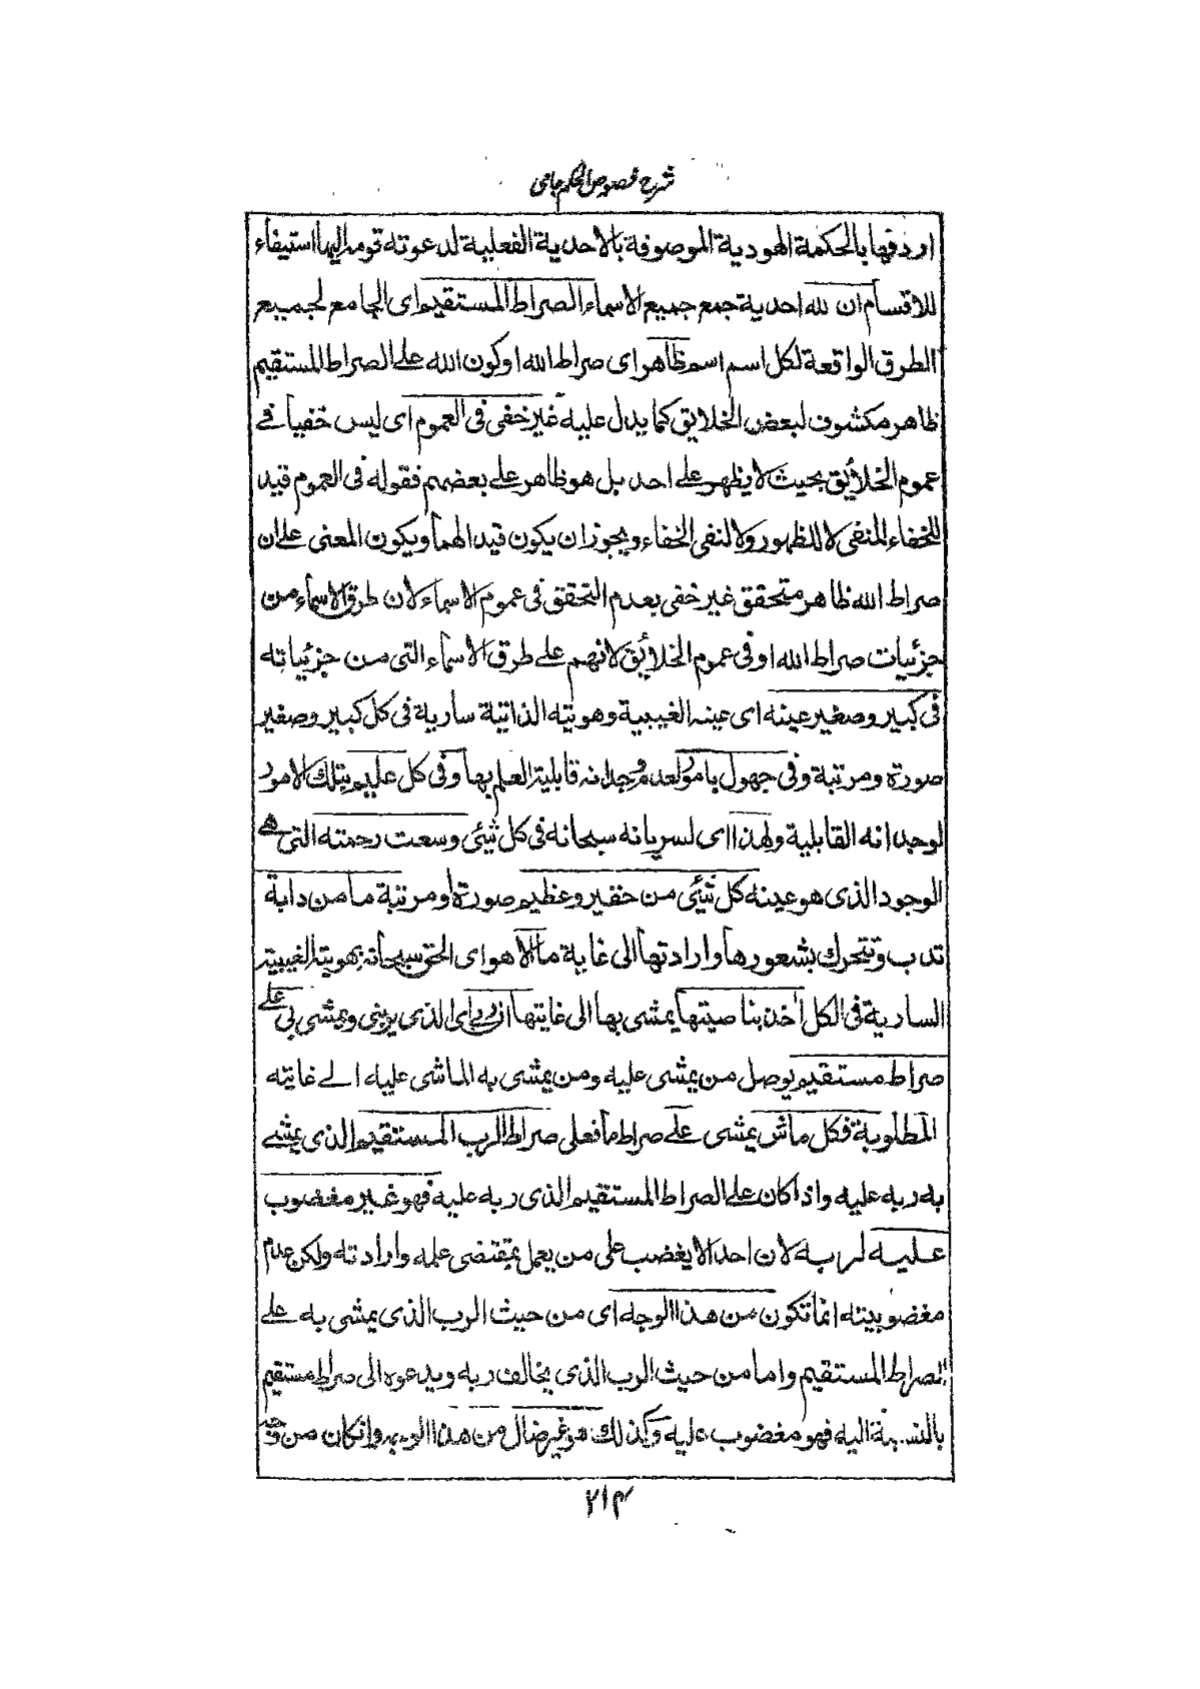 شرح فصوص الحكم جامى
اردفها بالحكمة الهودية الموصوفة بالاحدية الفعلية لدعوته قومه اليها استيفاء
للاقسام ان لله احدية جمع جميع الاسماء الصراط المستقيم اى الجامع لجميع
الطرق الواقعة لكل اسم اسم ظاهر اى صراط الله اوكون الله على الصراط المستقيم
ظاهر مكشوف لبعض الخلايق كما يدل عليه غير خفى فى العموم اى ليس خفيا فى
عموم الخلائق بحيث لا يظهر على احد بل هو ظاهر على بعضهم فقوله فى العموم قيد
للخفاء المنفى لا للظهور ولا لنفى الخفاء ويجوز ان يكون قيدا لهما ويكون المعنى على ان
صراط الله ظاهر متحقق غير خفى بعدم التحقق فى عموم الاسماء لان طرق الاسماء من
جزئيات صراط الله اوفى عموم الخلائق لانهم على طرق الاسماء التى من جزئياته
فى كبير وصغير عينه اى عينه الغيبية وهويته الذاتية سارية فى كل كبير وصغير
صورة ومرتبة وفى جهول بامور لعدم وجدانه قابلية العلم بها وفى كل عليم بتلك الامور
لوجدانه القابلية ولهذا اى لسريانه سبحانه فى كل شئى وسعت رحمته التى هى
الوجود الذى هو عينه كل شئى من حقير وعظيم صورة او مرتبة ما من دابة
تدب وتتحرك بشعورها وارادتها الى غاية ما الا هو اى الحق سبحانه بهويته الغيبية
السارية فى الكل اخذ بناصيتها يمشى بها الى غايتها ان ربى اى الذى يربنى ويمشى بى على
صراط مستقيم يوصل من يمشى عليه ومن يمشى به الماشى عليه الى غايته
المطلوبة فكل ماش يمشى على صراط ما فعلى صراط الرب المستقيم الذى يمشى
به ربه عليه واذا كان على الصراط المستقيم الذى ربه عليه فهو غير مغضوب
عليه لربه لان احدا لا يغضب على من يعمل بمقتضى علمه وارادته ولكن عدم
مغضوبيته انما تكون من هذا الوجه اى من حيث الرب الذى يمشى به على
الصراط المستقيم واما من حيث الرب الذى يخالف ربه ويدعوه الى صراط مستقيم
بالنسبة اليه فهو مغضوب عليه وكذلك هو غير ضال من هذا الوجه وان كان من وجه
٢١٣